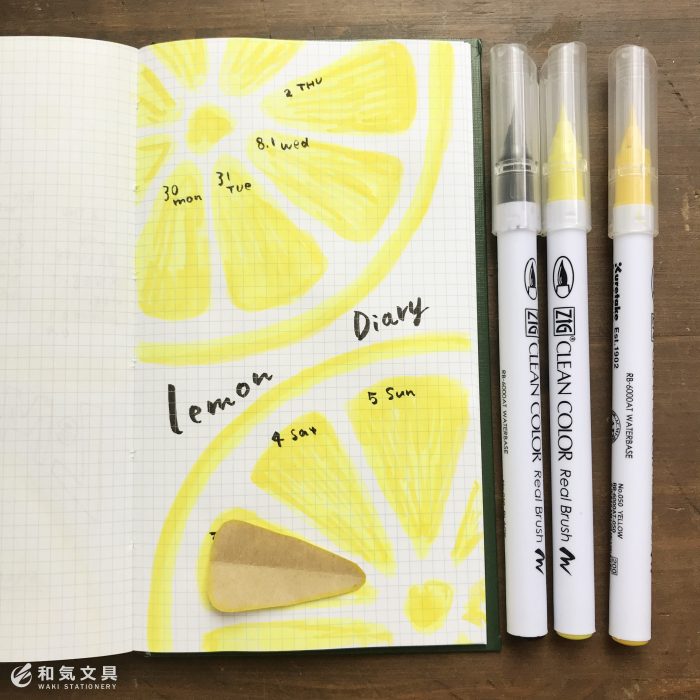 2 THU
8.1 wed
30
mon
31
TUE
Diary
lemon
5 Sun
4 Sat
ZIG® CLEAN COLOR Real Brush
RB-6000AT WATERBASE
ZIG® CLEAN COLOR Real Brush
Kuretake Est.1902
RB-6000AT WATERBASE
No.050 YELLOW
RB-6000AT-050
和気文具
WAKI STATIONERY